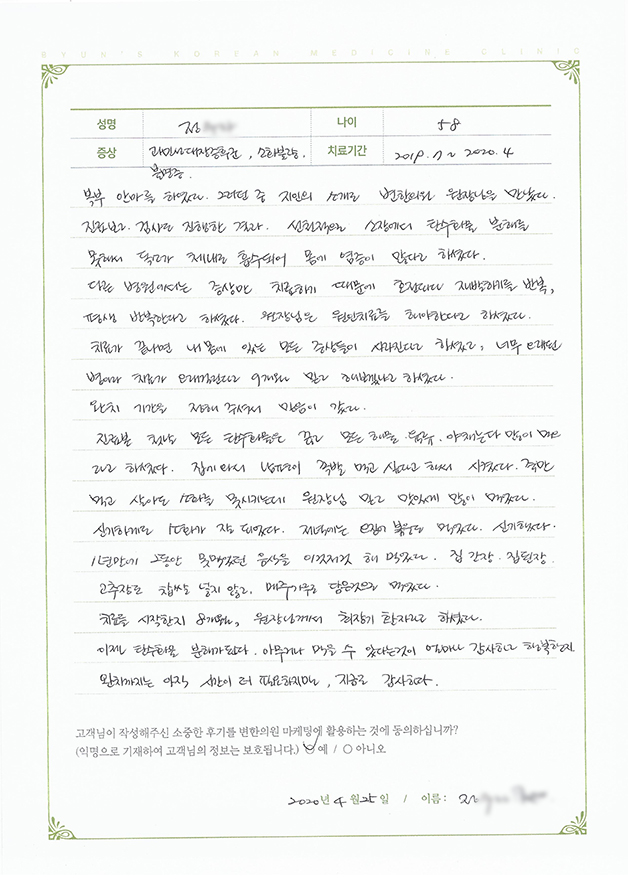 BYUN'S KOREAN MEDICINE CLINIC
성명 정 나이 58
증상 과민성대장증후군, 소화불량, 불면증. 치료기간 2019. 7 ~ 2020. 4
복부 안마를 하였다. 그러던 중 지인의 소개로 변한의원 원장님을 만났다.
진료보고 검사를 진행한 결과. 선천적으로 소장에서 탄수화물 분해를
못해서 독소가 체내로 흡수되어 몸에 염증이 많다고 하셨다.
다른 병원에서는 증상만 치료하기 때문에 호전되다 재발하기를 반복,
평생 반복한다고 하셨다. 원장님은 원인치료를 해야한다고 하셨다.
치료가 끝나면 내 몸에 있는 모든 증상들이 사라진다고 하셨고, 너무 오래된
병이라 치료가 오래걸린다고 9개월 믿고 해보겠냐고 하셨다.
완치 기간을 정해 주셔서 믿음이 갔다.
진료본 첫날 모든 탄수화물은 끊고 모든 해물·육류·야채는 다 많이 먹으
라고 하셨다. 집에 와서 남편이 족발 먹고 싶다고 해서 시켰다. 죽만
먹고 살아도 소화를 못시키는데 원장님 믿고 맛있게 많이 먹었다.
신기하게도 소화가 잘 되었다. 저녁에는 오징어 볶음도 먹었다. 신기했다.
1년만에 그동안 못먹었던 음식을 이것저것 해 먹었다. 집 간장. 집된장.
고추장도 찹쌀 넣지 않고, 메주가루로 담은것으로 먹었다.
치료를 시작한지 8개월, 원장님께서 회장기 환자라고 하셨다.
이제 탄수화물 분해가 된다. 아무거나 먹을 수 있다는것이 얼마나 감사하고 행복한지.
완치까지는 아직 시간이 더 필요하지만, 지금도 감사하다.
고객님이 작성해주신 소중한 후기를 변한의원 마케팅에 활용하는 것에 동의하십니까?
(익명으로 기재하여 고객님의 정보는 보호됩니다.) ○ 예 / ○ 아니오
2020년 4월 25일 / 이름: